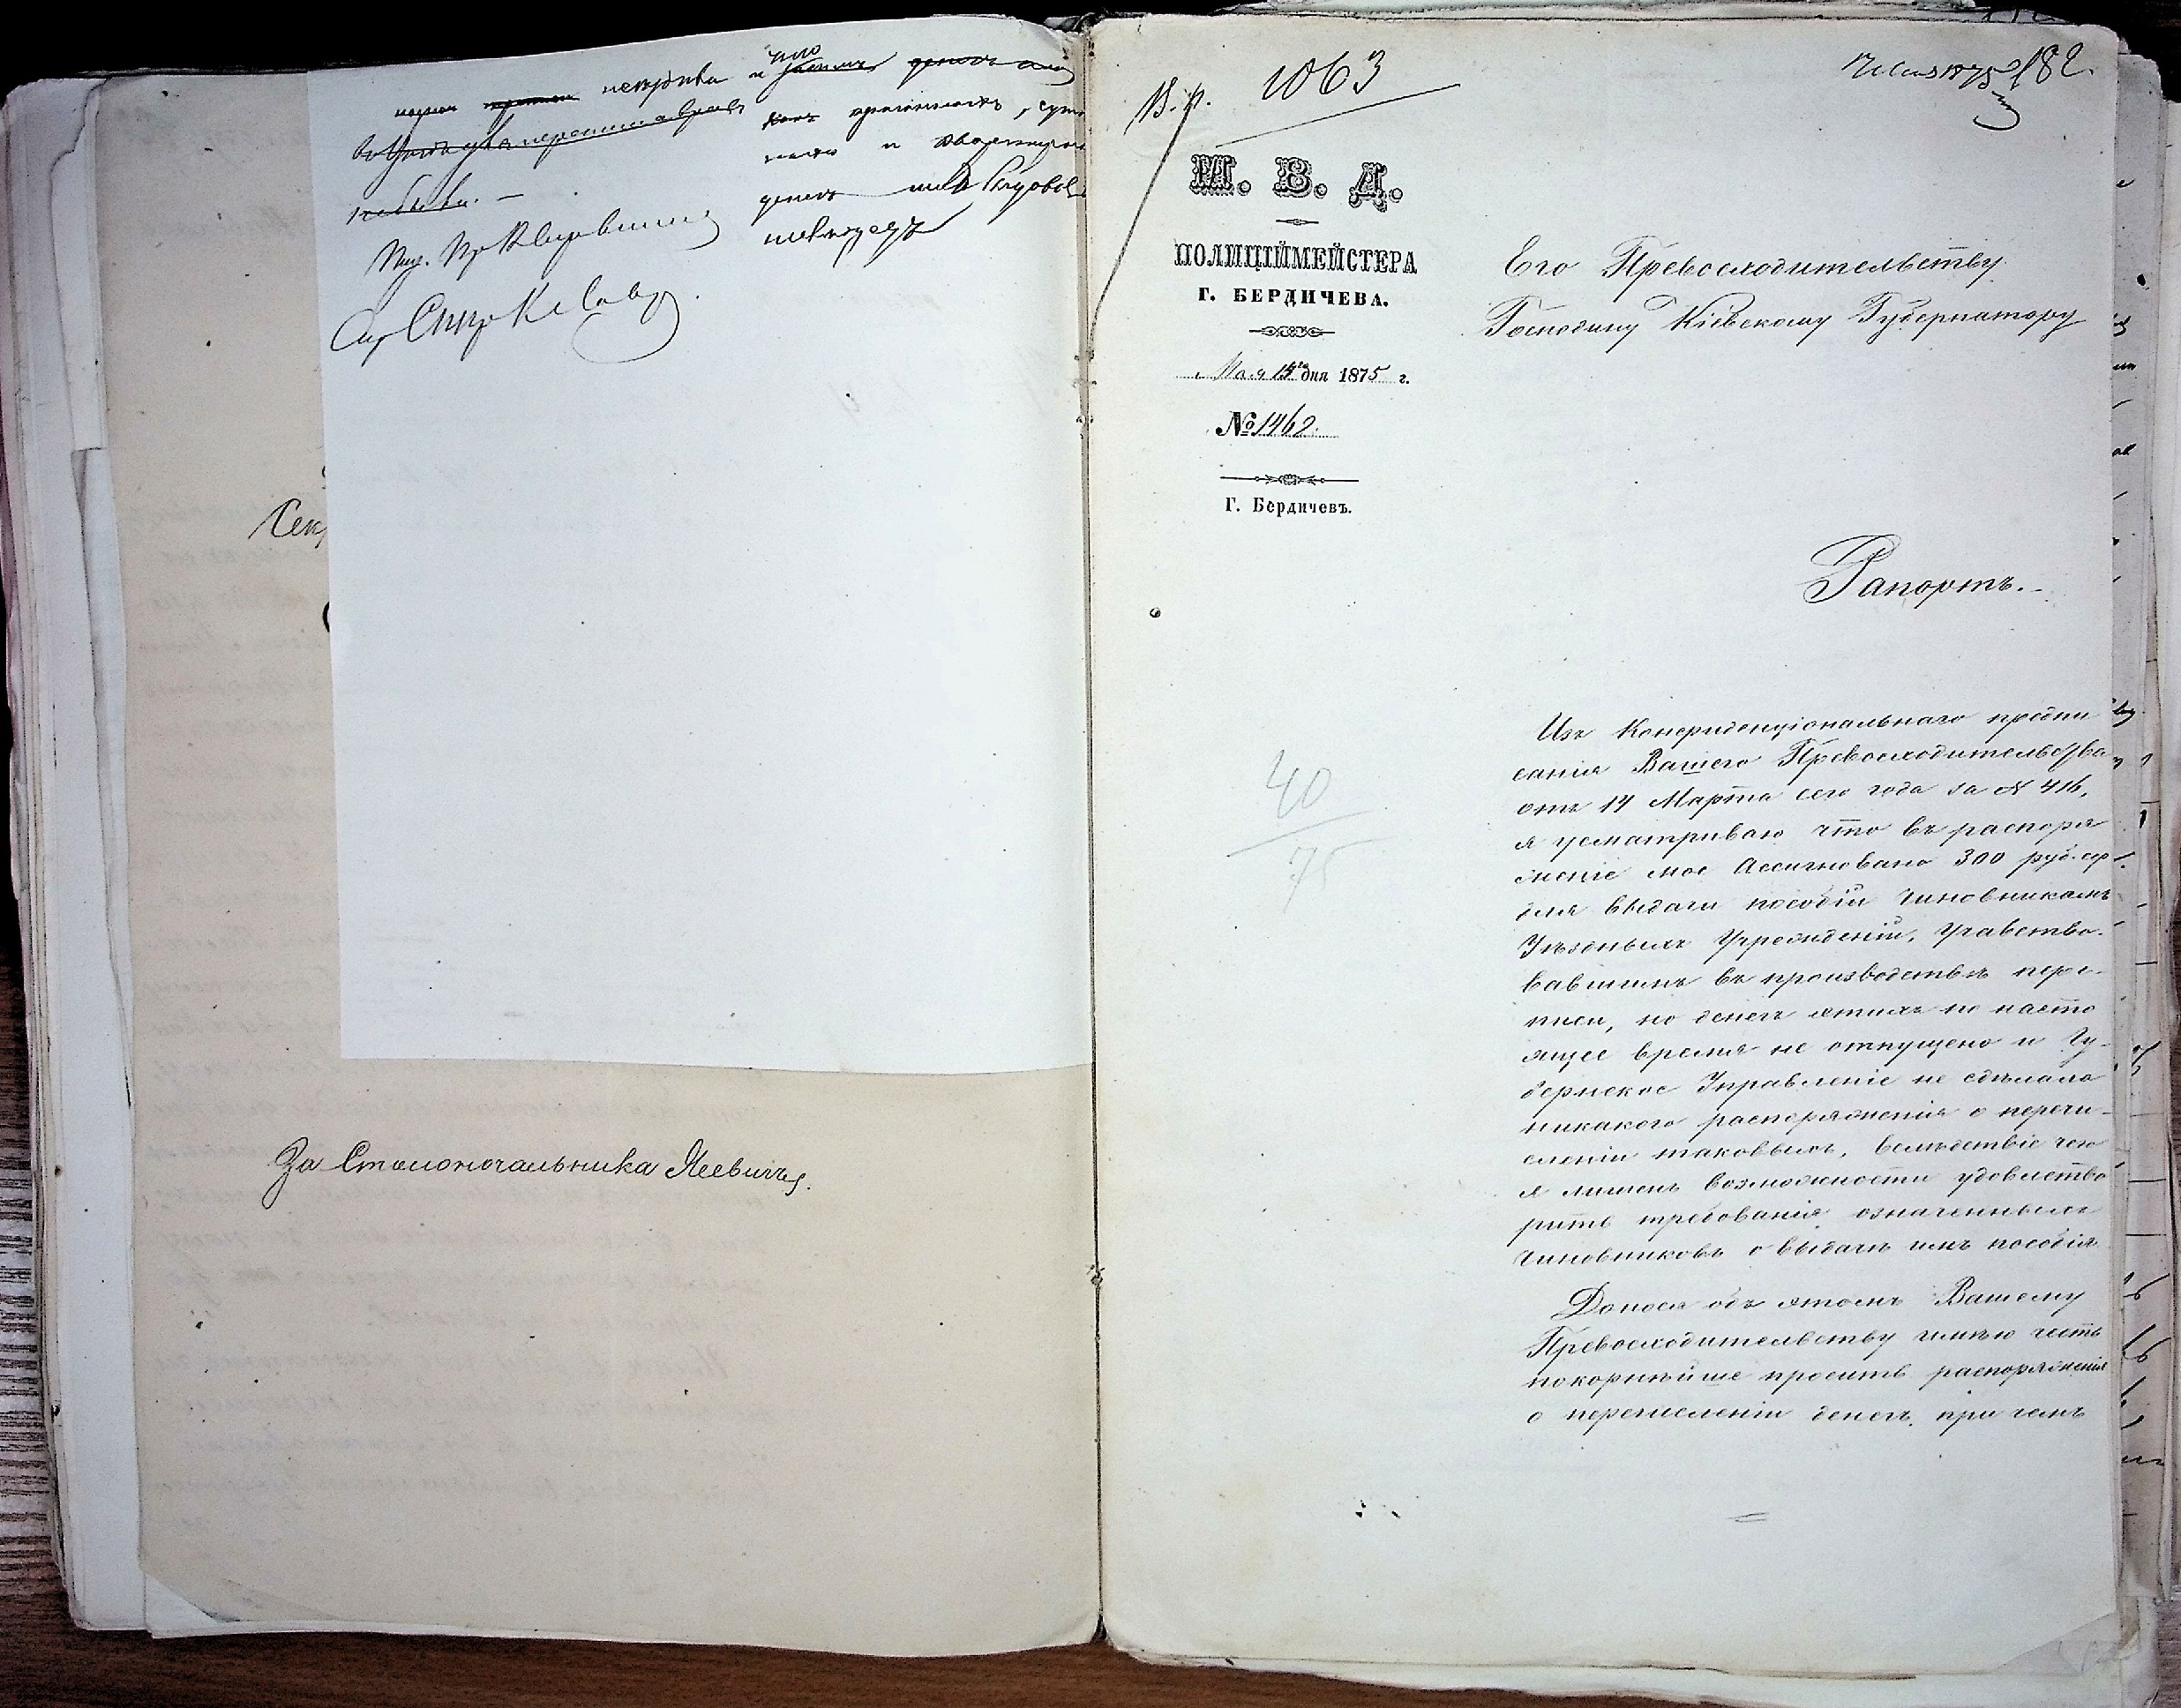 неправа и
что
прогонныхъ,
и квартирн
денегъ
Сек
За Столоначальника Ясевичъ.
В. п. 1063
17 Мая 1875 182.
М. В. Д.
ПОЛИЦІЙМЕЙСТЕРА
Г. БЕРДИЧЕВА.
Мая 15го дня 1875 г.
№ 1462.
Г. Бердичевъ.
40
75
Его Превосходительству
Господину Кіевскому Губернатору
Рапортъ.
Изъ Конфиденціональнаго предпи
санія Вашего Превосходительства
отъ 14 Марта сего года за № 416,
я усматриваю что въ распоря
женіе мое Ассигновано 300 руб. сер.
для выдачи пособій чиновникамъ
Уѣздныхъ Учрежденій, участво-
вавшимъ въ производствѣ пере-
писи, но денегъ этихъ по насто
ящее время не отпущено и Гу-
бернское Управленіе не сдѣлало
никакого распоряженія о перечи-
сленіи таковыхъ, вслѣдствіе чего
я лишенъ возможности удовлетво
рить требованія означенныхъ
чиновниковъ о выдачѣ имъ пособія
Донося объ этомъ Вашему
Превосходительству имѣю честь
покорнѣйше просить распоряженія
о перечисленіи денегъ, при чемъ